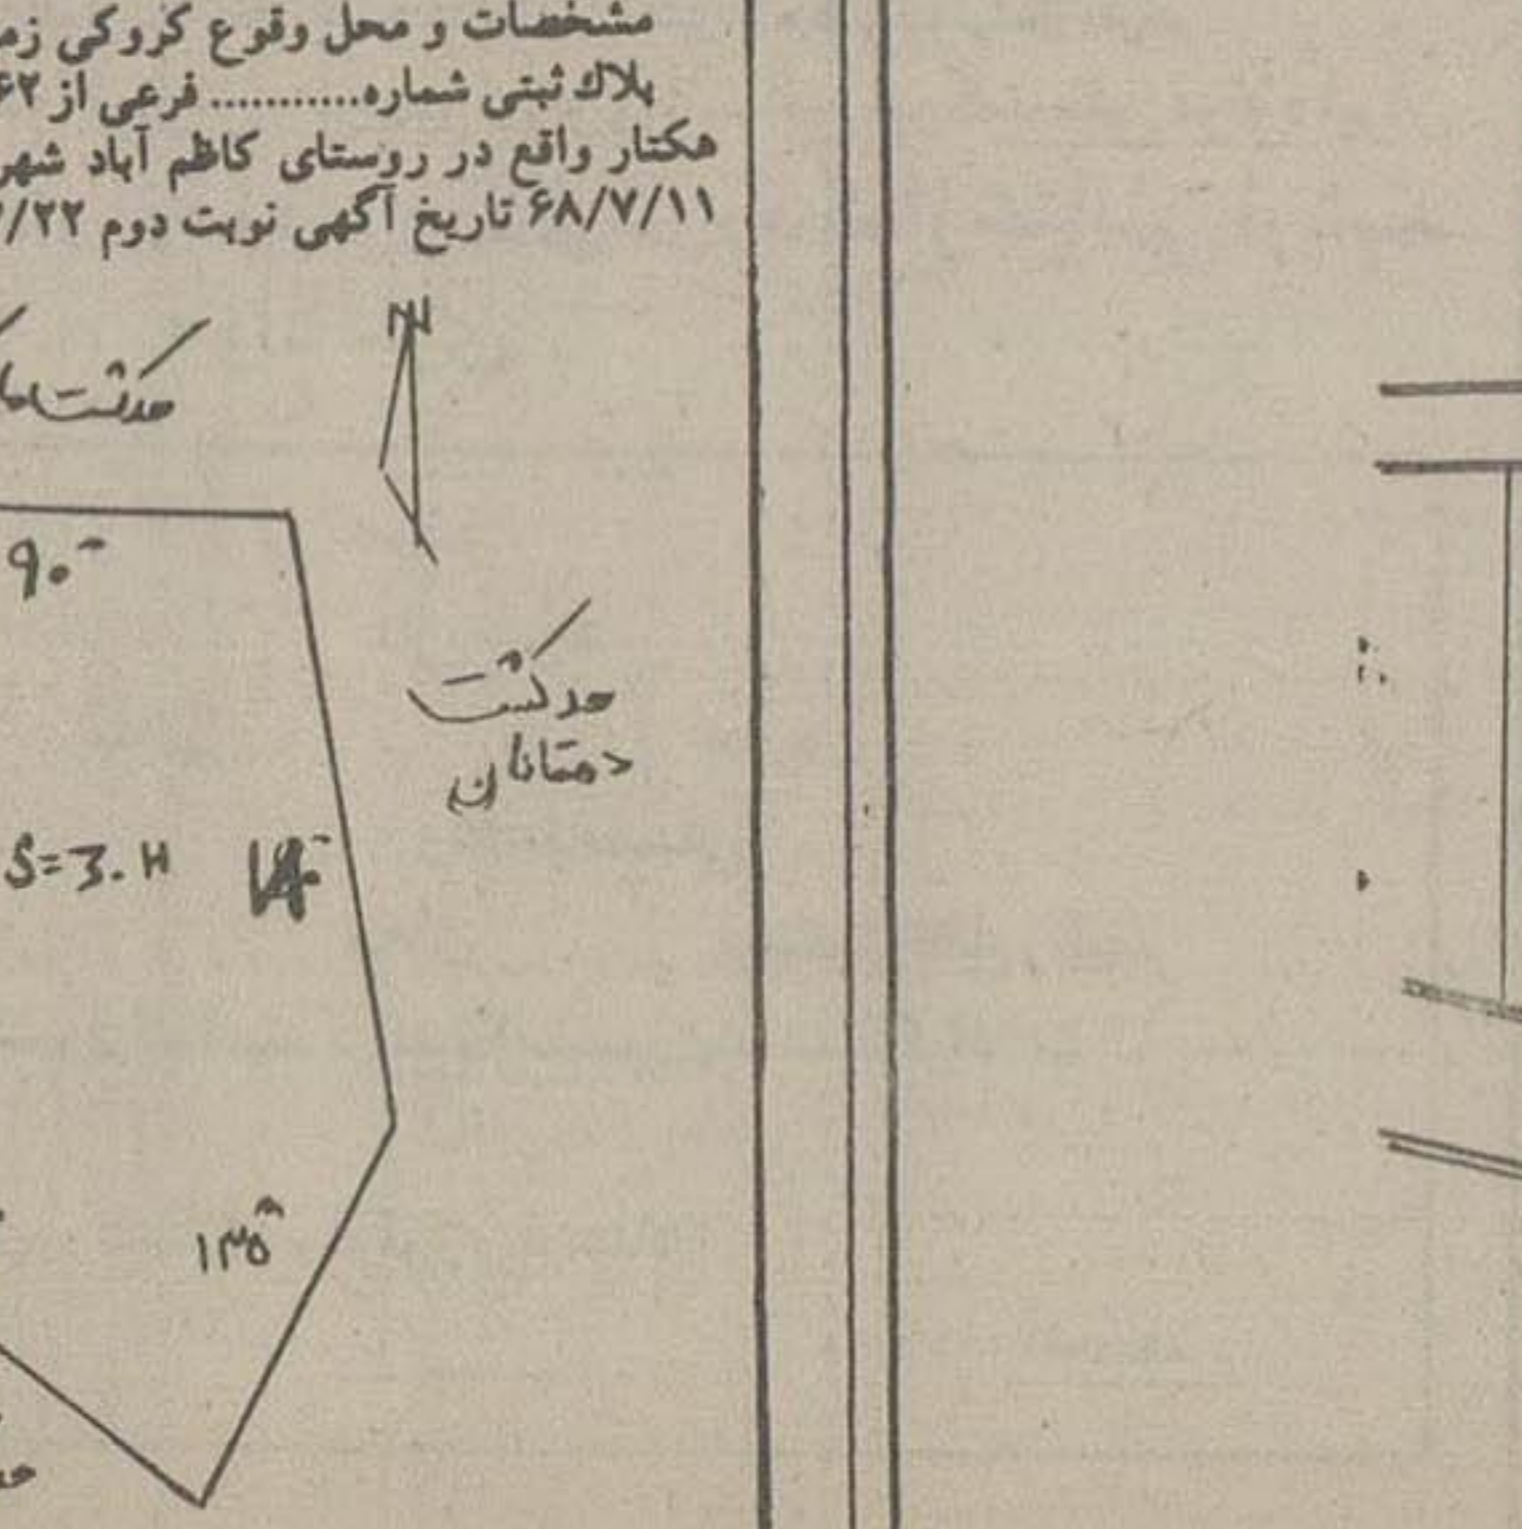 مشخصات و محل وقوع کروکی
پلاك ثبتی شماره........... فرعی از
هکتار واقع در روستای کاظم آباد
۶۸/۷/۱۱ تاریخ آگهی نوبت دوم ۲۲/
N
۹۰
حد کشت
دهقانان
S=3.H
۱۳۵